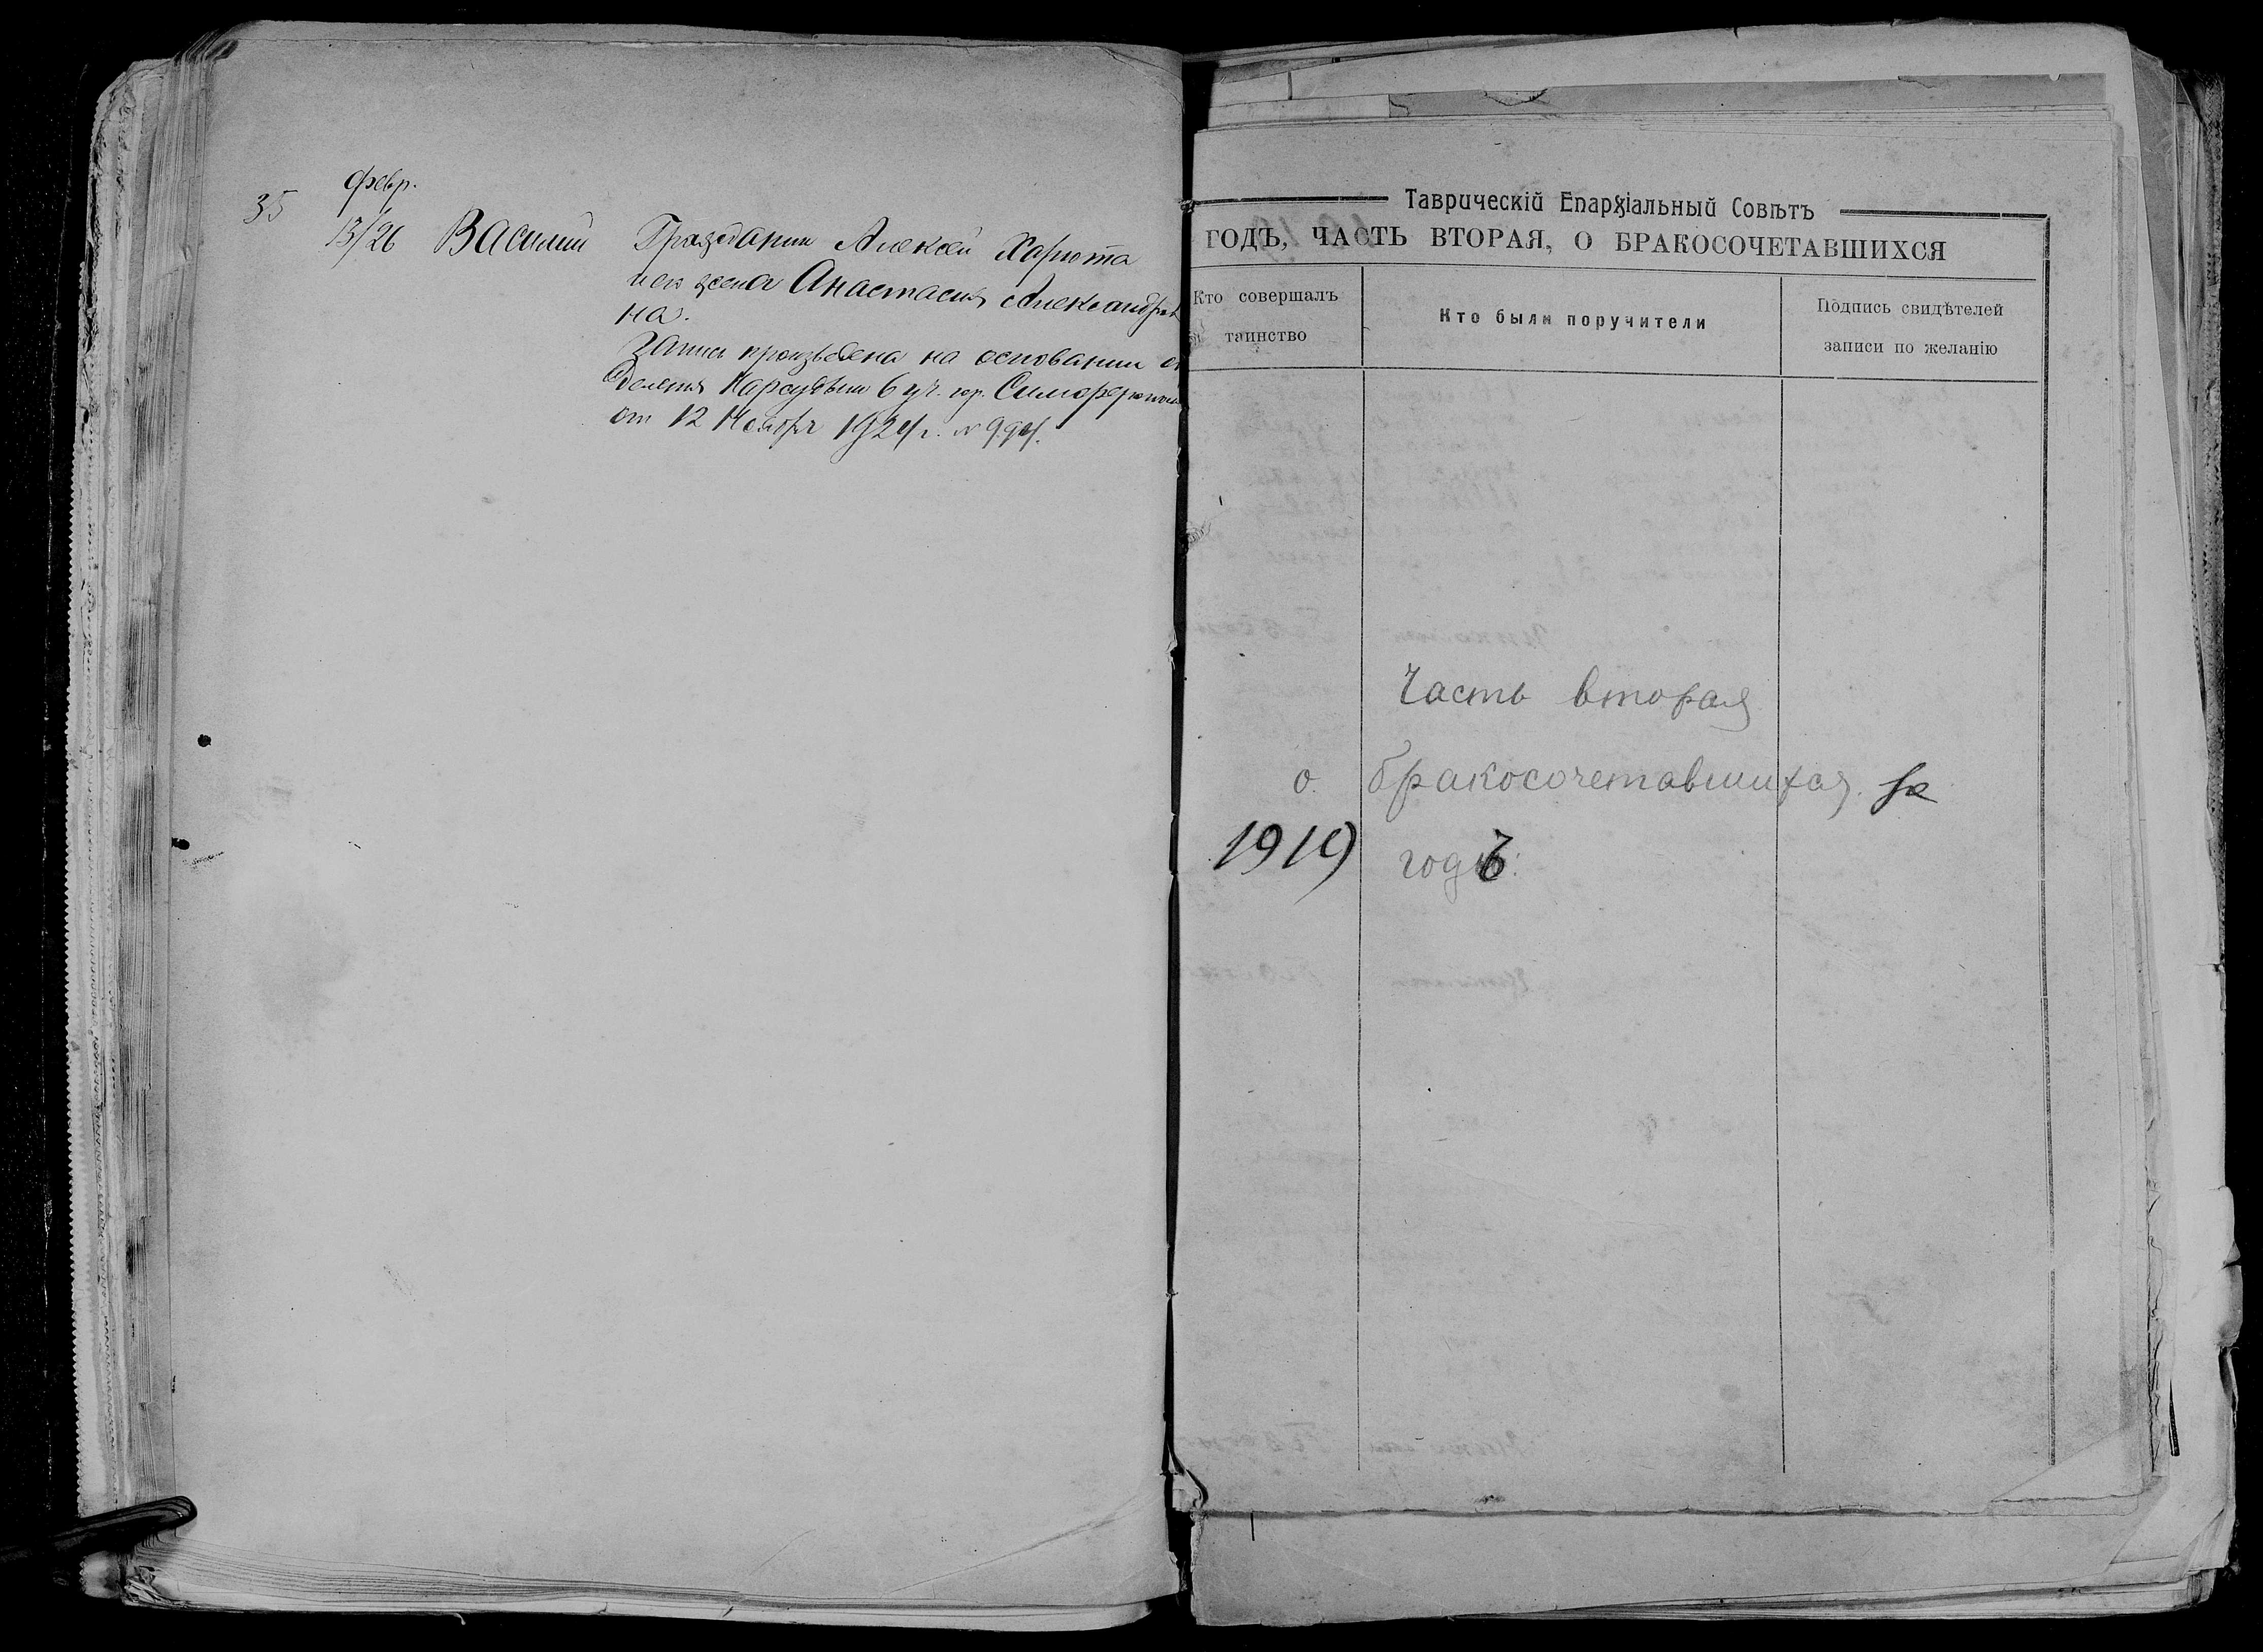 35
февр.
13/26 Василий Гражданин Алексей Харюта
и его жена Анастасия Александров
на.
Запись произведена на основании о
деления Нарсудьи 6 уч. гор. Симферопол
от 12 Ноября 1924 г. № 994.
Таврическій Епархіальный Совѣтъ
ГОДЪ, ЧАСТЬ ВТОРАЯ, О БРАКОСОЧЕТАВШИХСЯ
Кто совершалъ
таинство
Кто были поручители
Подпись свидѣтелей
записи по желанію
Часть вторая
о бракосочетавшихся. за
1919 годъ.